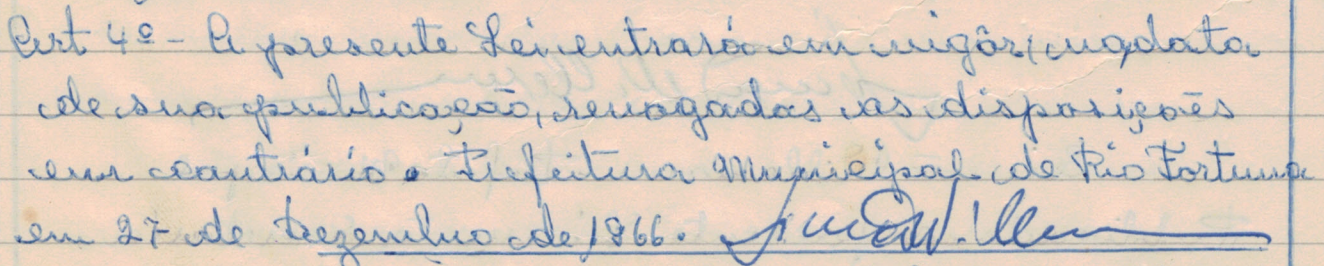 Art 4º - A presente Lei entrará em vigôr, na data
de sua publicação, revogadas as disposições
em contrário. Prefeitura Municipal de Rio Fortuna
em 27 de Dezembro de 1966.